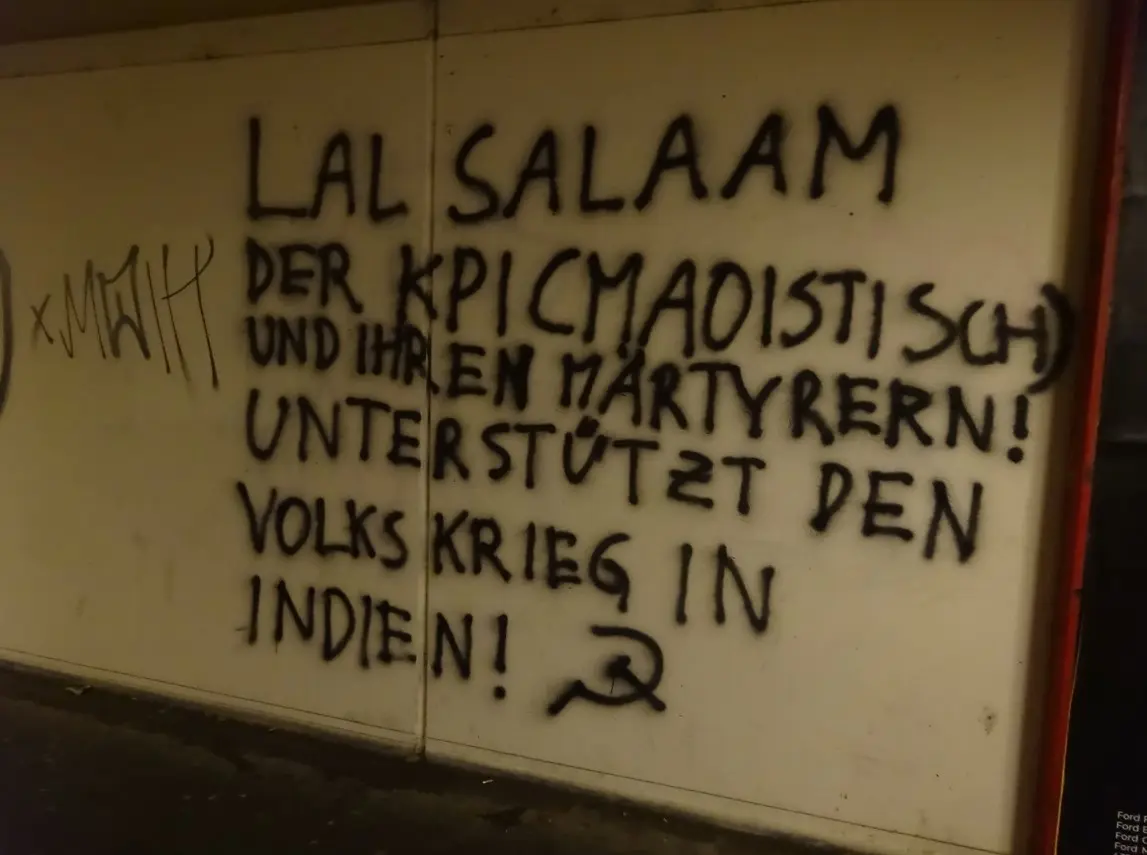 LAL SALAAM
DER KPI (MAOISTISCH)
UND IHREN MÄRTYRERN!
UNTERSTÜTZT DEN
VOLKSKRIEG IN
INDIEN!
Ford
Ford
Ford
Ford